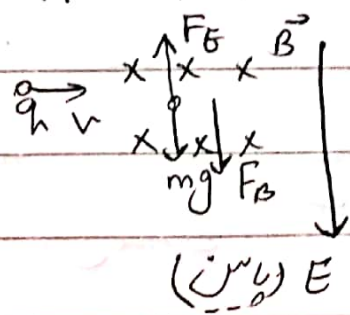 F_E B⃗
× × ×
q v
× × ×
mg F_B
(پایین) E